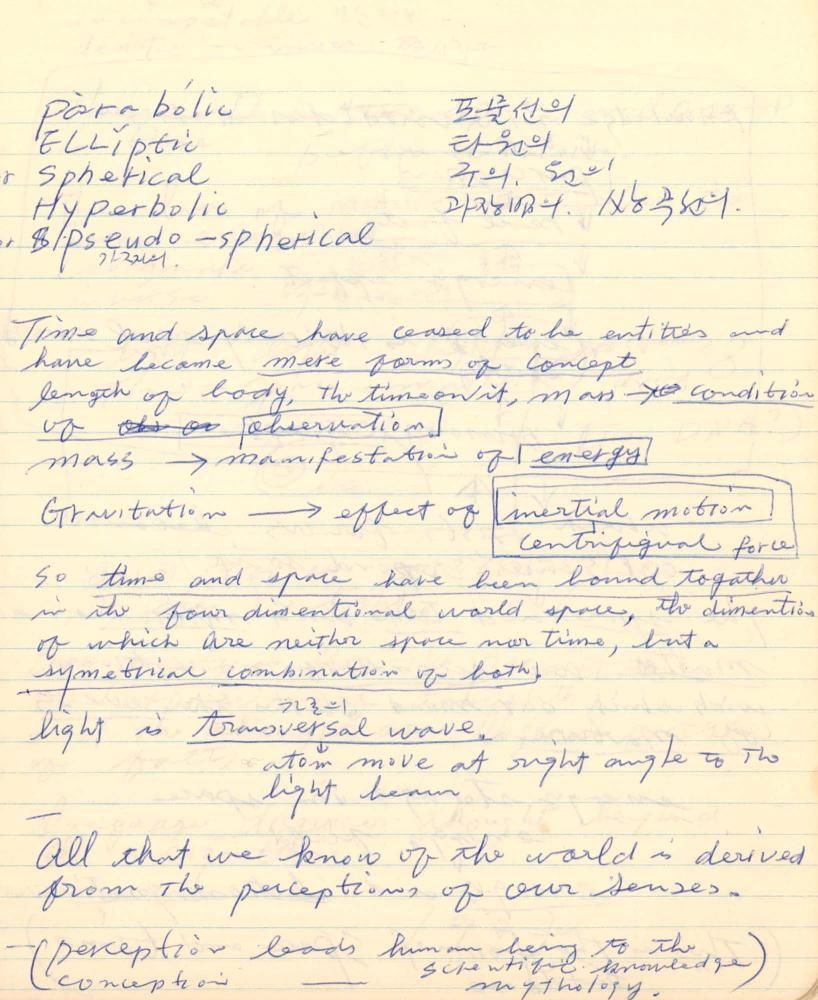 Parabolic 포물선의
ELLiptic 타원의
or Spherical 구의, 원의
Hyperbolic 과장된의. 쌍곡선의.
or pseudo-spherical
가구의.
Time and space have ceased to be entities and
have became mere forms of concept
length of body, the time on it, mass → condition
of observation.
mass → manifestation of energy
Gravitation → effect of inertial motion
centrifigual force
So time and space have been bound togather
in the four dimentional world space, the dimention
of which are neither space nor time, but a
symetrical combination of both.
가로의
light is transversal wave.
atom move at right angle to the
light beam
All that we know of the world is derived
from the perceptions of our senses.
(perception leads human being to the
scientific knowledge)
conception — mythology.